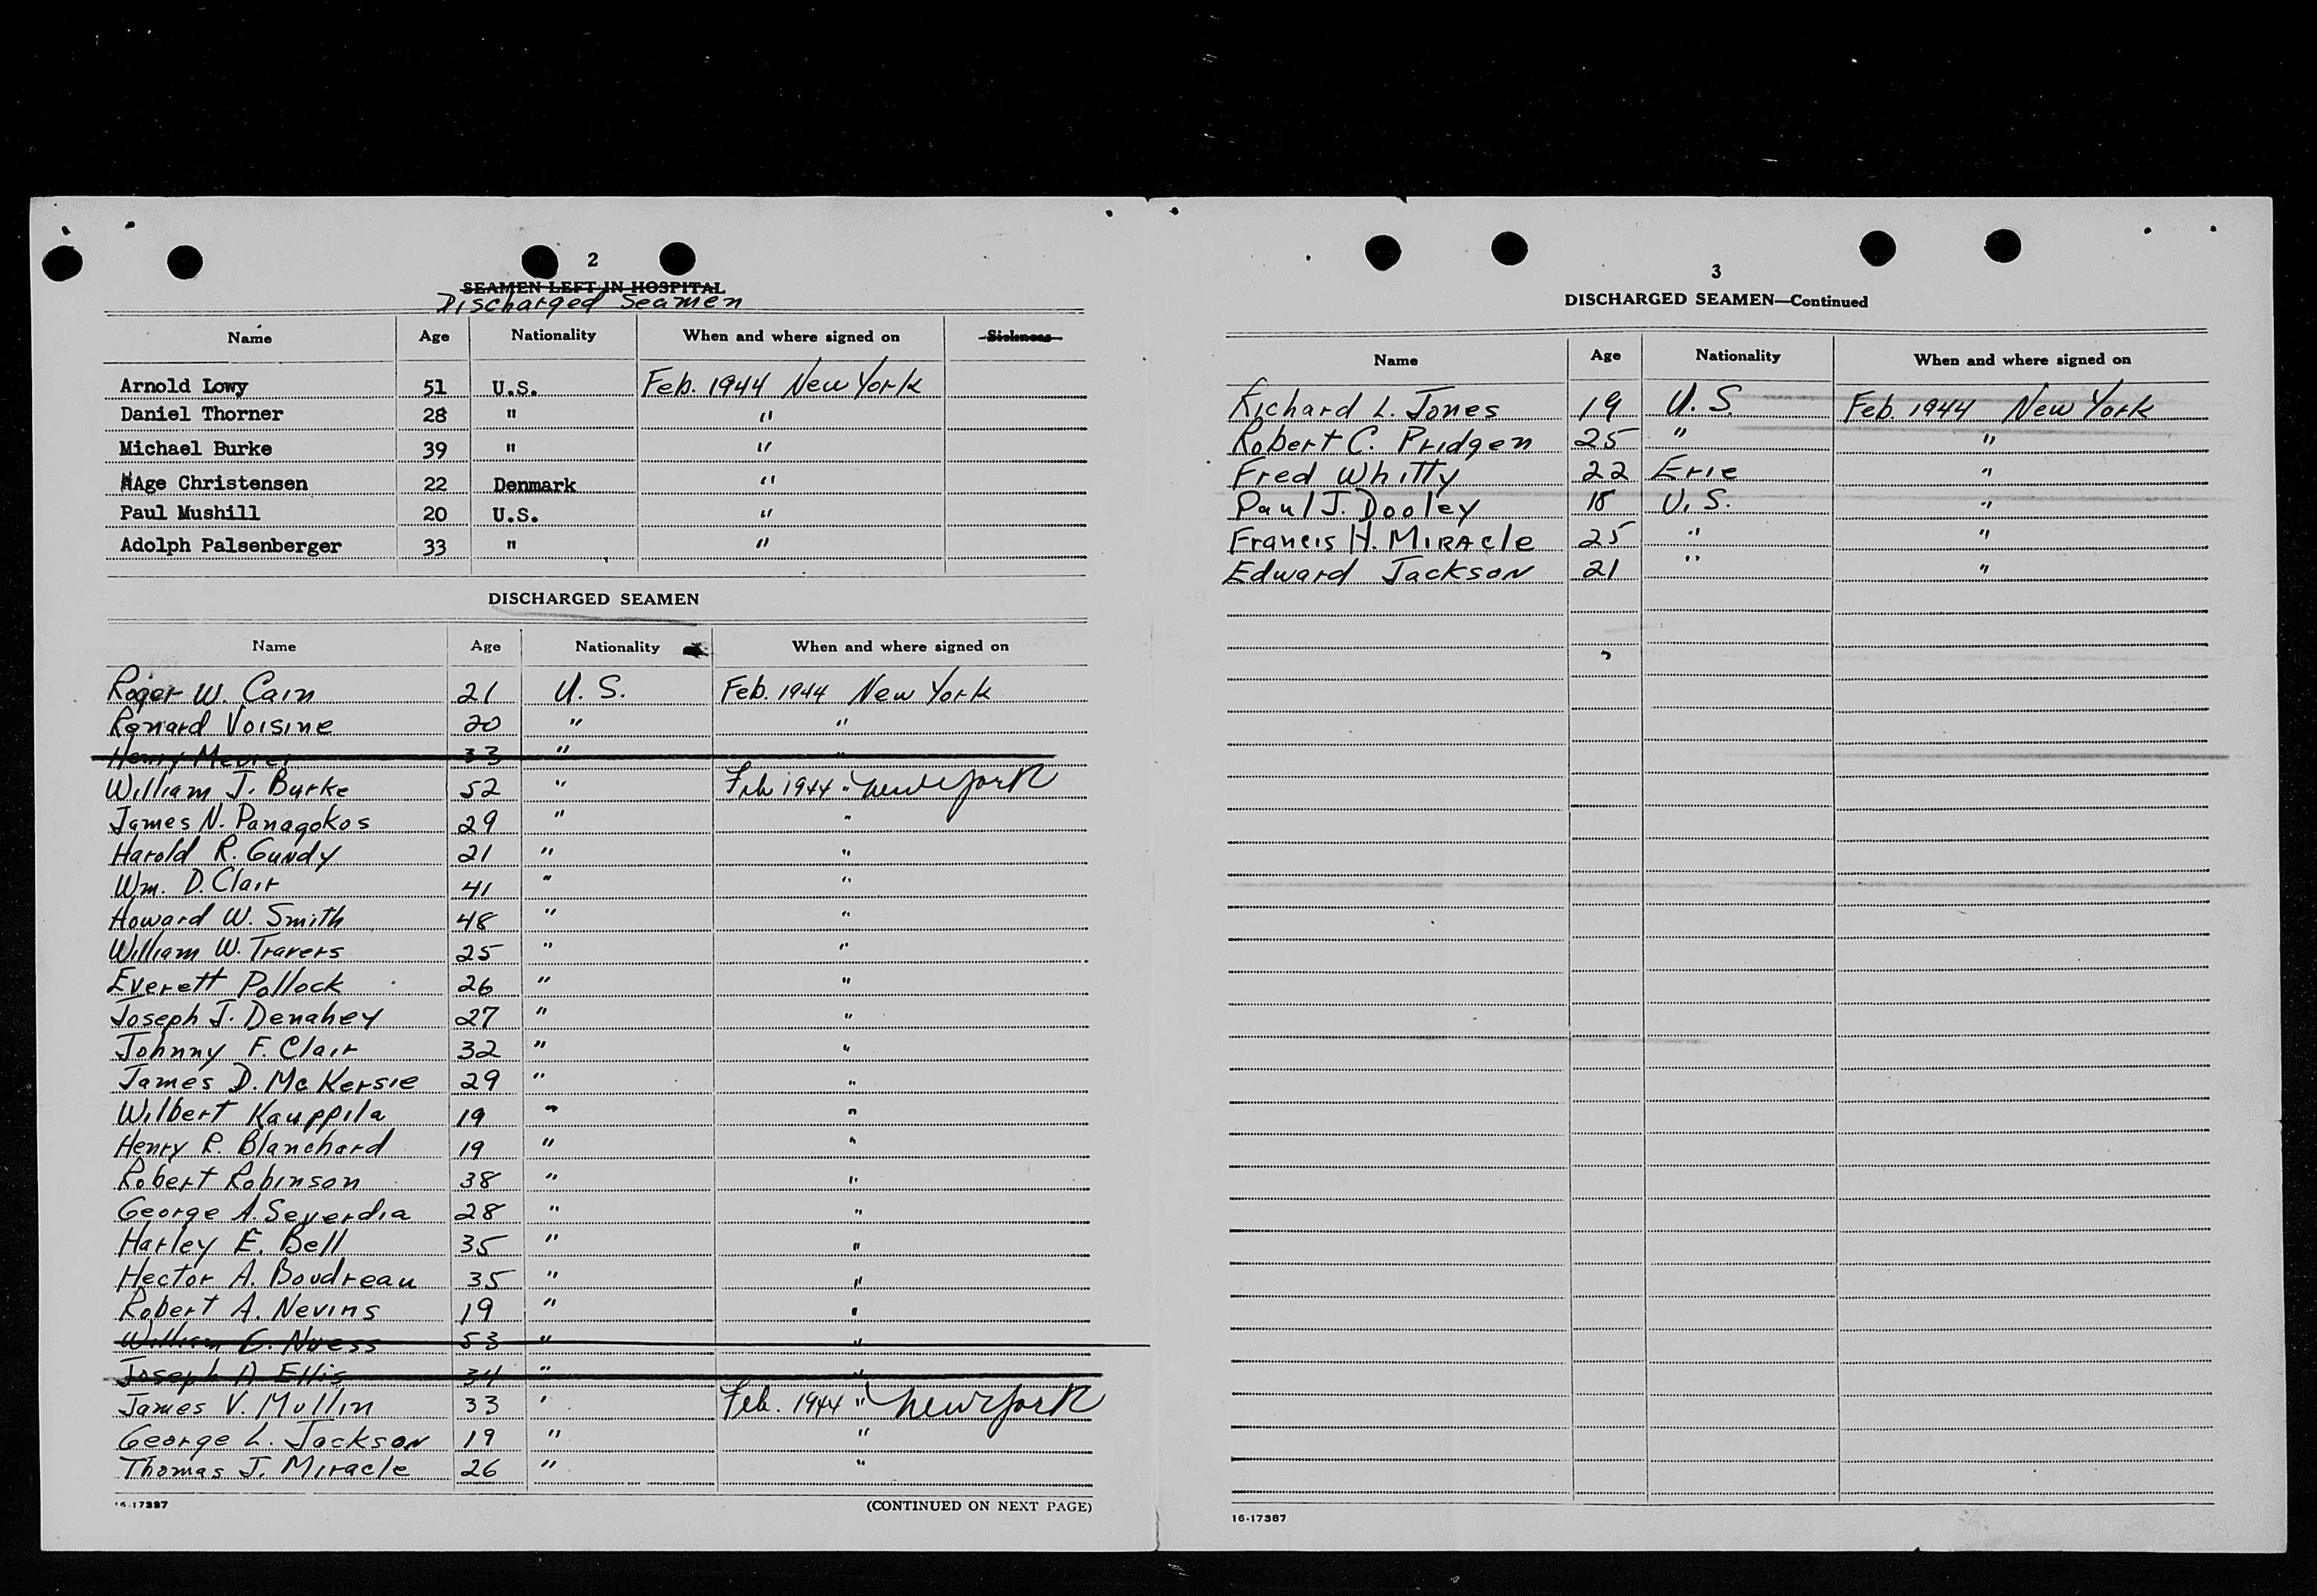 2
SEAMEN LEFT IN HOSPITAL
Discharged Seamen
Name Age Nationality When and where signed on Sickness
Arnold Lowy 51 U.S. Feb. 1944 New York
Daniel Thorner 28 " "
Michael Burke 39 " "
Age Christensen 22 Denmark "
Paul Mushill 20 U.S. "
Adolph Palsenberger 33 " "
DISCHARGED SEAMEN
Name Age Nationality When and where signed on
Roger W. Cain 21 U.S. Feb. 1944 New York
Renard Voisine 20 " "
Henry 33 " "
William J. Burke 52 " Feb 1944 " New York
James N. Panagokos 29 " "
Harold R. Gundy 21 " "
Wm. D. Clair 41 " "
Howard W. Smith 48 " "
William W. Travers 25 " "
Everett Pollock 26 " "
Joseph J. Denahey 27 " "
Johnny F. Clair 32 " "
James D. McKersie 29 " "
Wilbert Kauppila 19 " "
Henry R. Blanchard 19 " "
Robert Robinson 38 " "
George A. Severdia 28 " "
Harley E. Bell 35 " "
Hector A. Boudreau 35 " "
Robert A. Nevins 19 " "
William C. Noess 53 " "
Joseph A Ellis 34 " "
James V. Mullin 33 " Feb. 1944 " New York
George L. Jackson 19 " "
Thomas J. Miracle 26 " "
16-17387 (CONTINUED ON NEXT PAGE)
3
DISCHARGED SEAMEN—Continued
Name Age Nationality When and where signed on
Richard L. Jones 19 U.S. Feb. 1944 New York
Robert C. Pridgen 25 " "
Fred Whitty 22 Erie "
Paul J. Dooley 18 U.S. "
Francis H. Miracle 25 " "
Edward Jackson 21 " "
16-17387